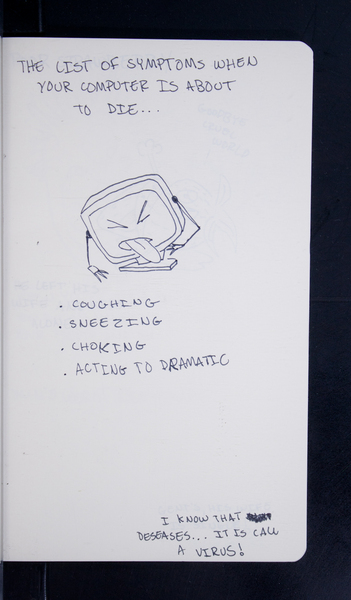 THE LIST OF SYMPTOMS WHEN
YOUR COMPUTER IS ABOUT
TO DIE...
. COUGHING
. SNEEZING
. CHOKING
. ACTING TO DRAMATIC
I KNOW THAT
DESEASES... IT IS CALL
A VIRUS!